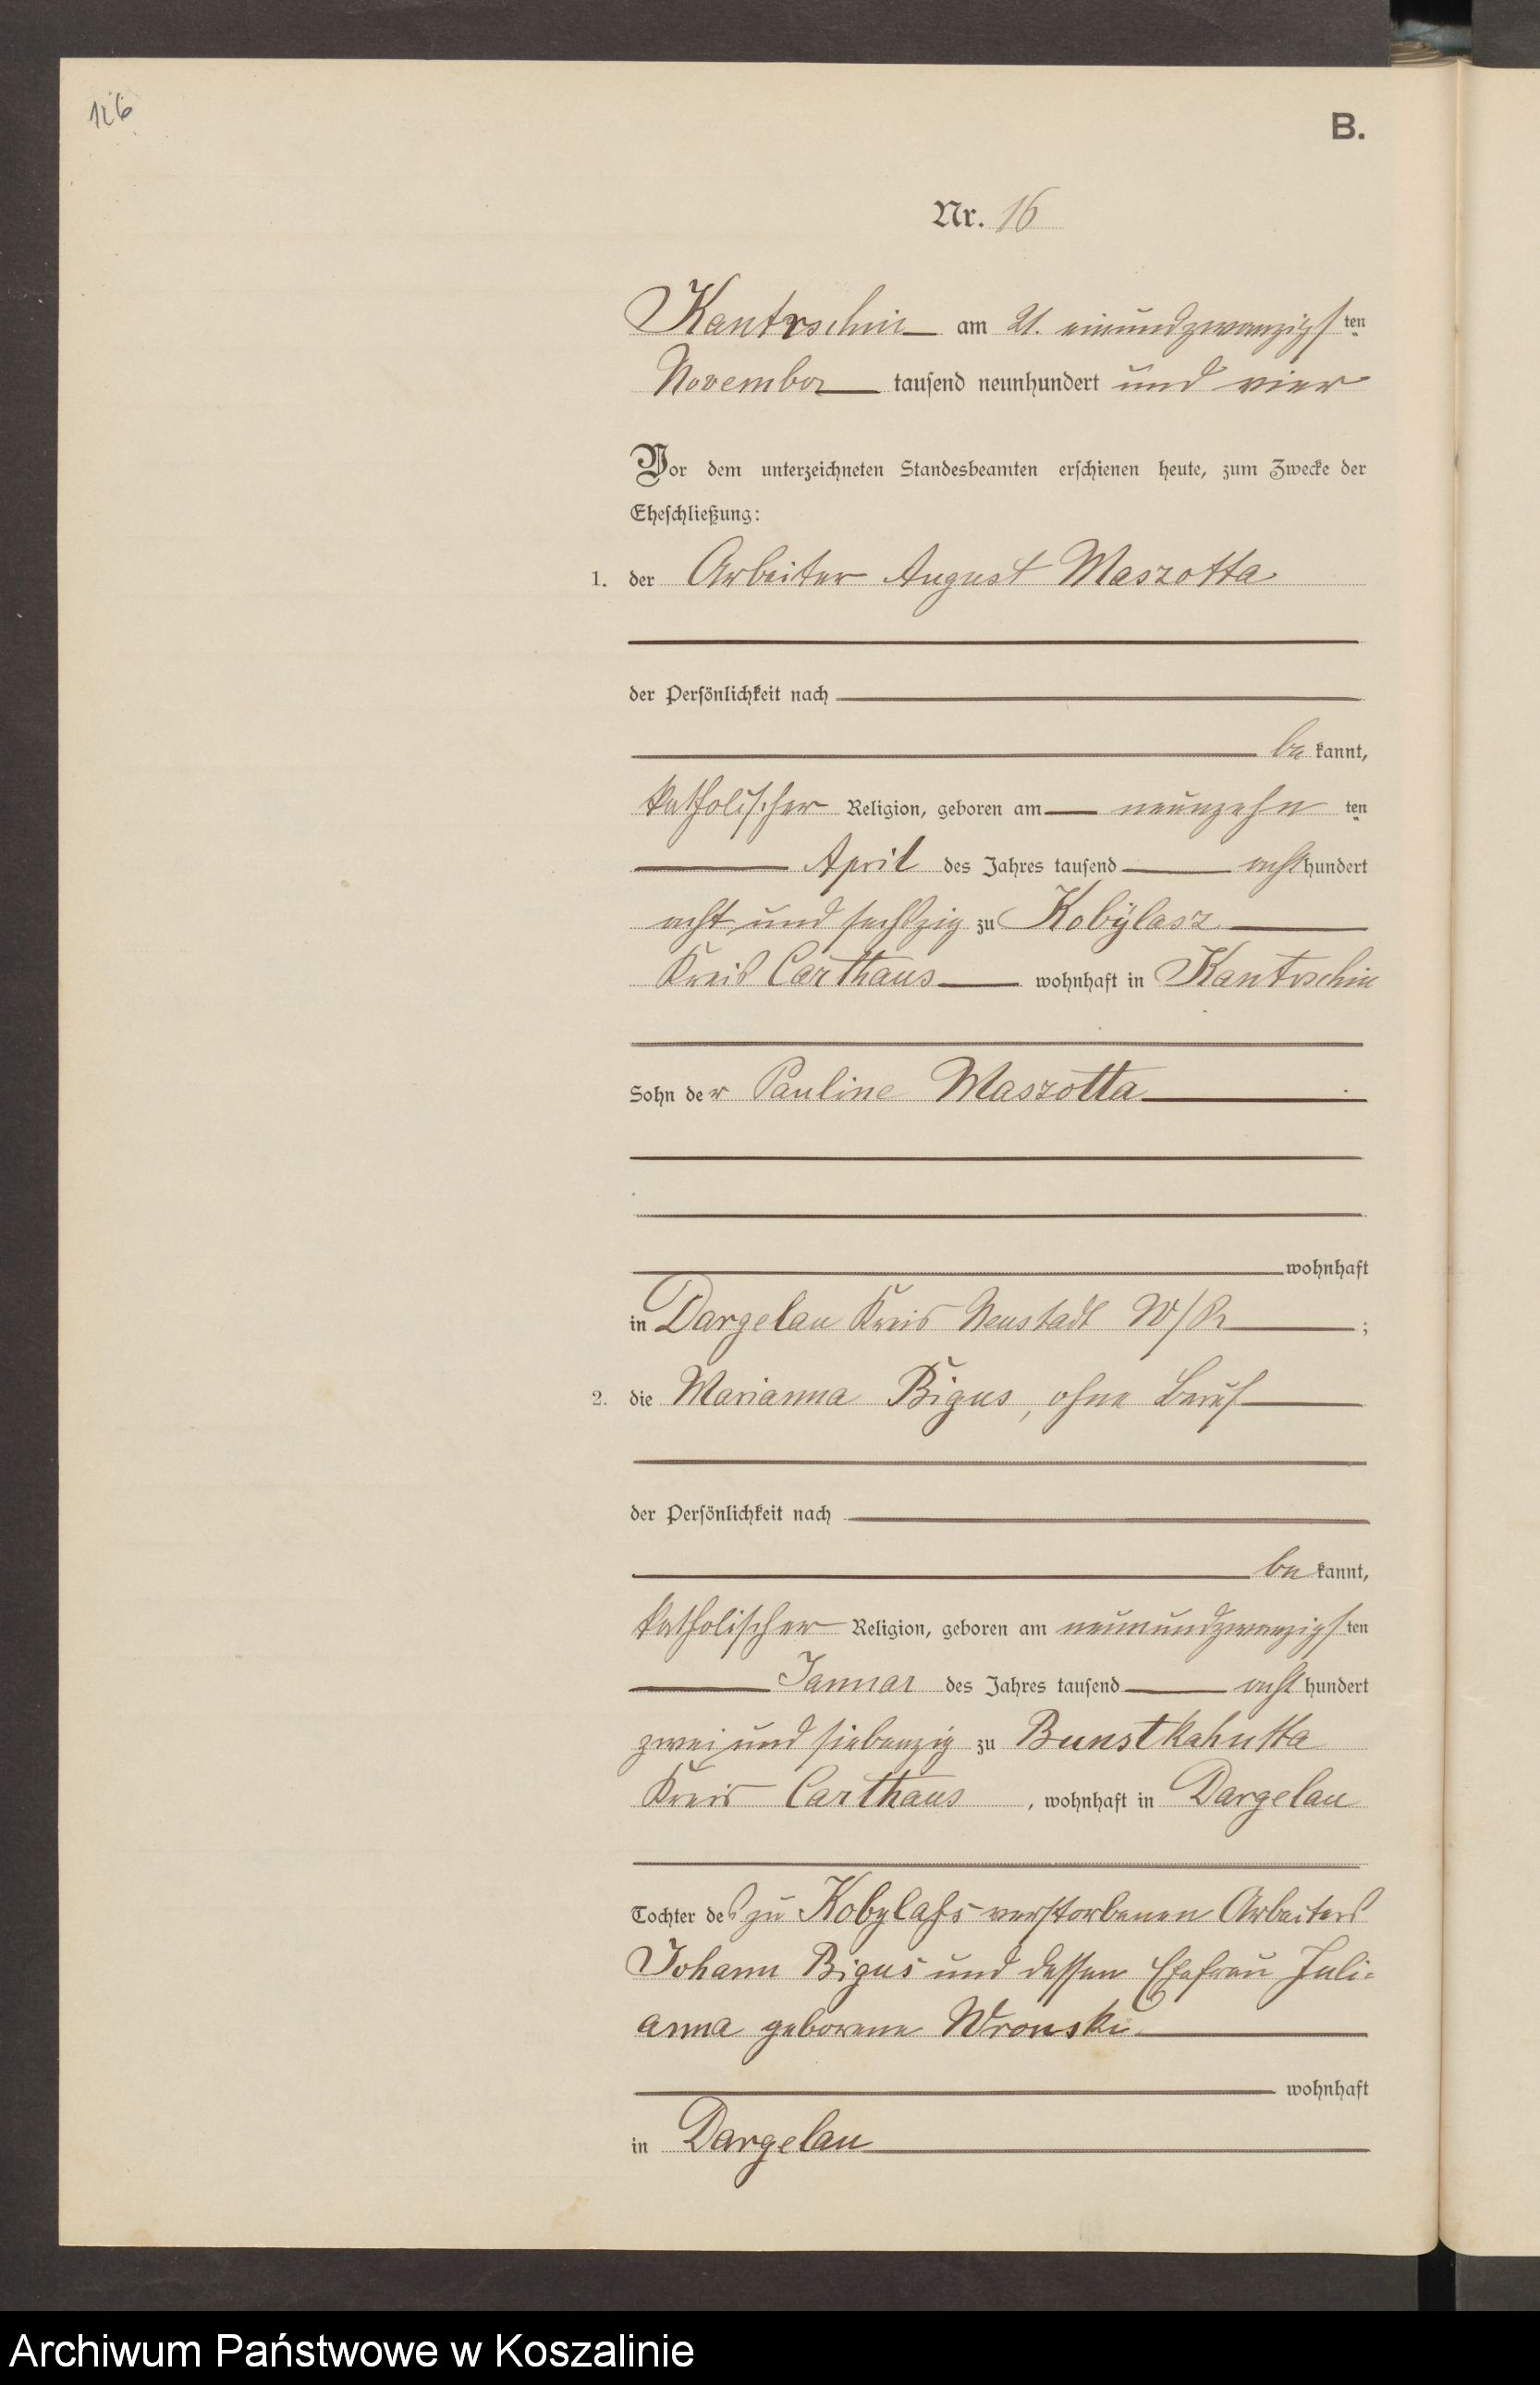 126
B.
Nr. 16
Kantrschin am 21. einundzwanzigsten
November tausend neunhundert und vier
Vor dem unterzeichneten Standesbeamten erschienen heute, zum Zwecke der
Eheschließung:
1. der Arbeiter August Maszotta
der Persönlichkeit nach
be kannt,
katholischer Religion, geboren am neunzehn ten
April des Jahres tausend acht hundert
acht und sechszig zu Kobÿlasz
Kreis Carthaus wohnhaft in Kantrschin
Sohn der Pauline Maszotta
wohnhaft
in Dargelau Kreis Neustadt W/Pr ;
2. die Marianna Bigus, ohne Beruf
der Persönlichkeit nach
be kannt,
katholischer Religion, geboren am neunundzwanzigsten
Januar des Jahres tausend acht hundert
zwei und siebenzig zu Bunstkahutta
Kreis Carthaus , wohnhaft in Dargelau
Tochter des zu Kobylass verstorbenen Arbeiters
Johann Bigus und dessen Ehefrau Juli-
anna geborene Wronski
wohnhaft
in Dargelau
Archiwum Państwowe w Koszalinie